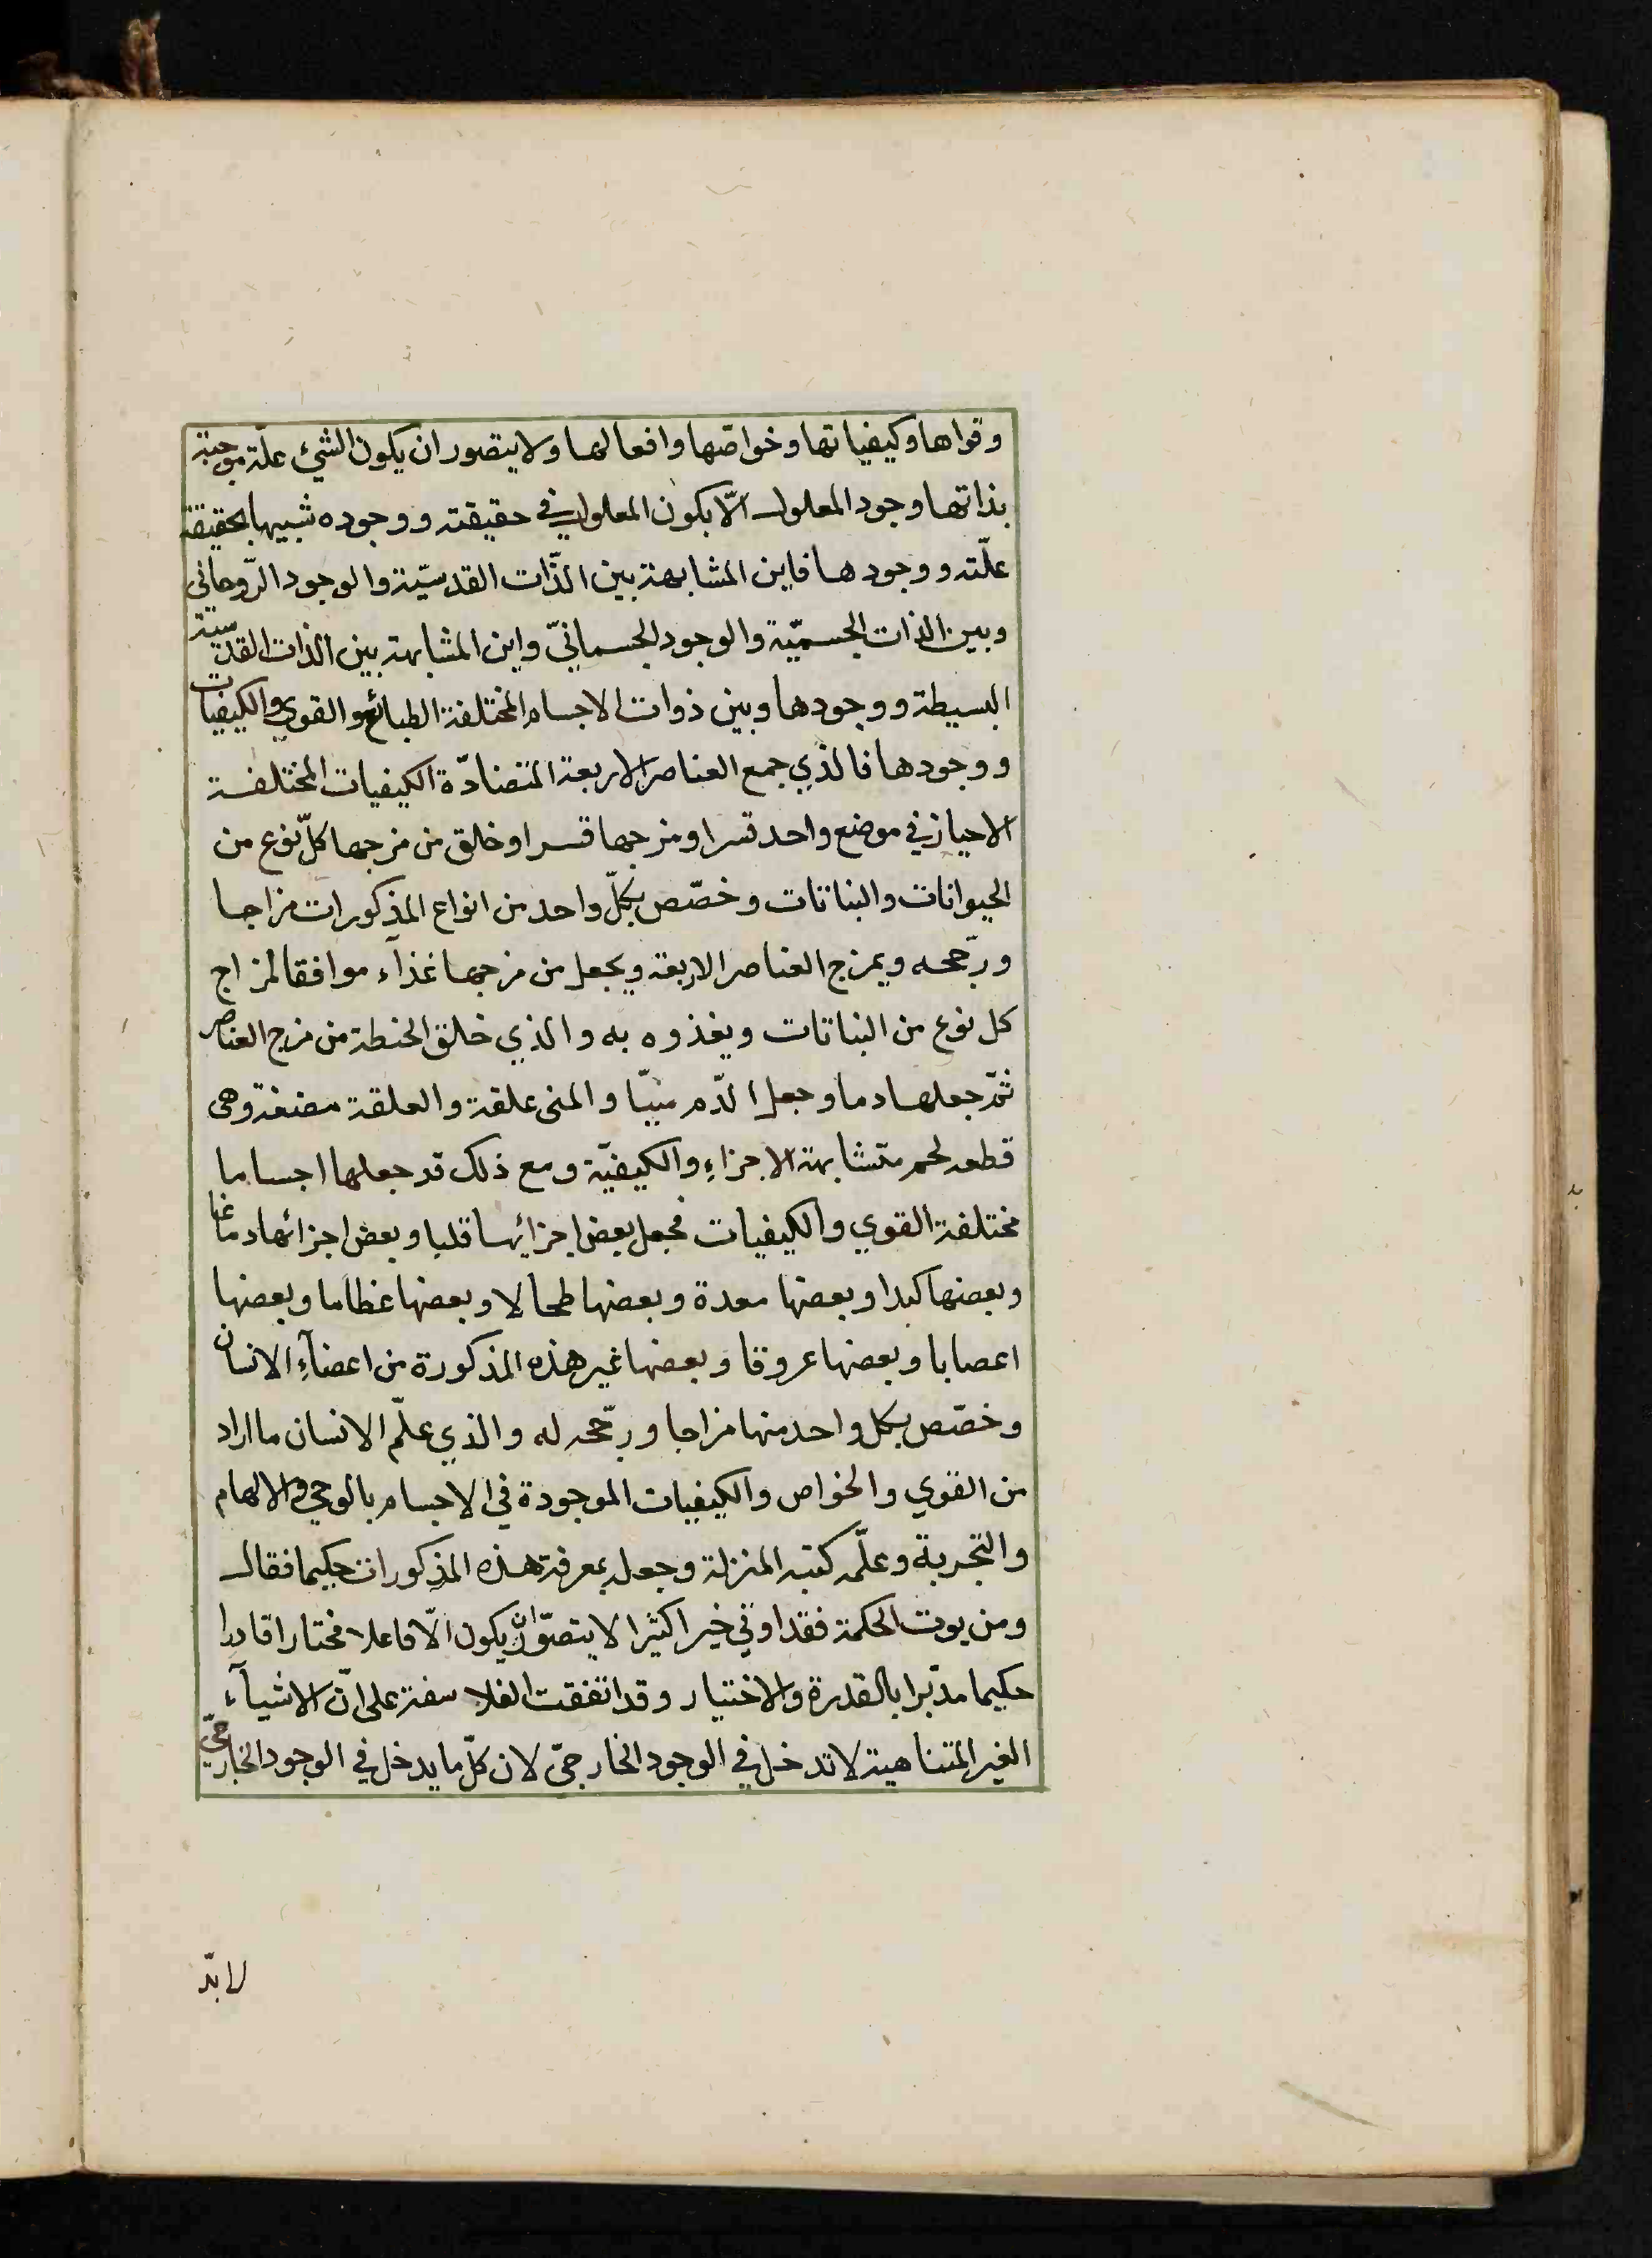 وقواها وكيفياتها وخواصّها وافعالها ولا يتصور ان يكون الشئ علّة موجبة
بذاتها وجود المعلول الّا بكون المعلول في حقيقته ووجوده شبيها بحقيقة
علّته ووجودها فاين المشابهة بين الذّات القدسيّة والوجود الرّوحاني
وبين الذات الجسميّة والوجود الجسمانيّ واين المشابهة بين الذات القدسية
البسيطة ووجودها وبين ذوات الاجسام المختلفة الطبائع والقوي والكيفيات
ووجودها فالذي جمع العناصر الاربعة المتضادّة الكيفيات المختلفة
الاحياز في موضع واحد قسرا ومزجها قسرا وخلق من مزجها كلّ نوع من
الحيوانات والنباتات وخصّص بكلّ واحد من انواع المذكورات مزاجا
ورجّحه ويمزج العناصر الاربعة ويجعل من مزجها غذآء موافقا لمزاج
كل نوع من النباتات ويغذوه به والذي خلق الحنطة من مزج العناصر
ثمّ جعلها دما وجعل الدّم منيّا والمنى علقة والعلقة مضغة وهى
قطعه لحم متشابهة الاجزاءِ والكيفيّة ومع ذلك قد جعلها اجساما
مختلفة القوي والكيفيات فجعل بعض اجزائها قلبا وبعض اجزائها دماغا
وبعضها كبدا وبعضها معدة وبعضها طحالا وبعضها عظاما وبعضها
اعصابا وبعضها عروقا وبعضها غير هذه المذكورة من اعضآءِ الانسان
وخصّص بكل واحد منها مزاجا ورجّحه له والذي علّم الانسان ما اراد
من القوي والخواص والكيفيات الموجودة في الاجسام بالوحي والالهام
والتجربة وعلّمه كتبه المنزلة وجعله بمعرفة هذه المذكورات حكيما فقال
ومن يوت الحكمة فقد اوتي خيرا كثيرا لا يتصوّر ان يكون الّا فاعلا مختارا قادرا
حكيما مدبّرا بالقدرة والاختيار وقد اتفقت الفلاسفة على انّ الاشيآء
الغير المتناهية لا تدخل في الوجود الخارجيّ لان كلّ ما يدخل في الوجود الخارجيّ
لا بدّ